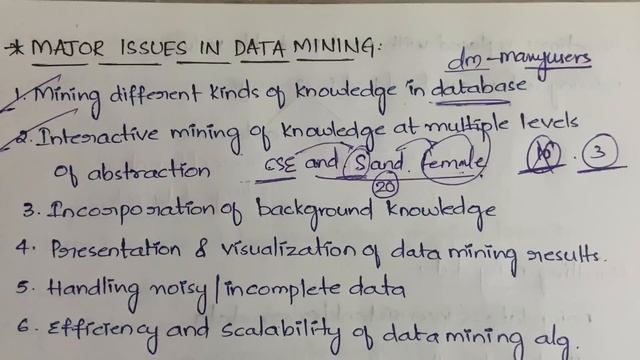 * MAJOR ISSUES IN DATA MINING:
dm-manyusers
1. Mining different kinds of knowledge in database
2. Interactive mining of knowledge at multiple levels
of abstraction CSE and S and female . 3
20
3. Incorporation of background knowledge
4. Presentation & visualization of data mining results.
5. Handling noisy/incomplete data
6. Efficiency and scalability of data mining alg.